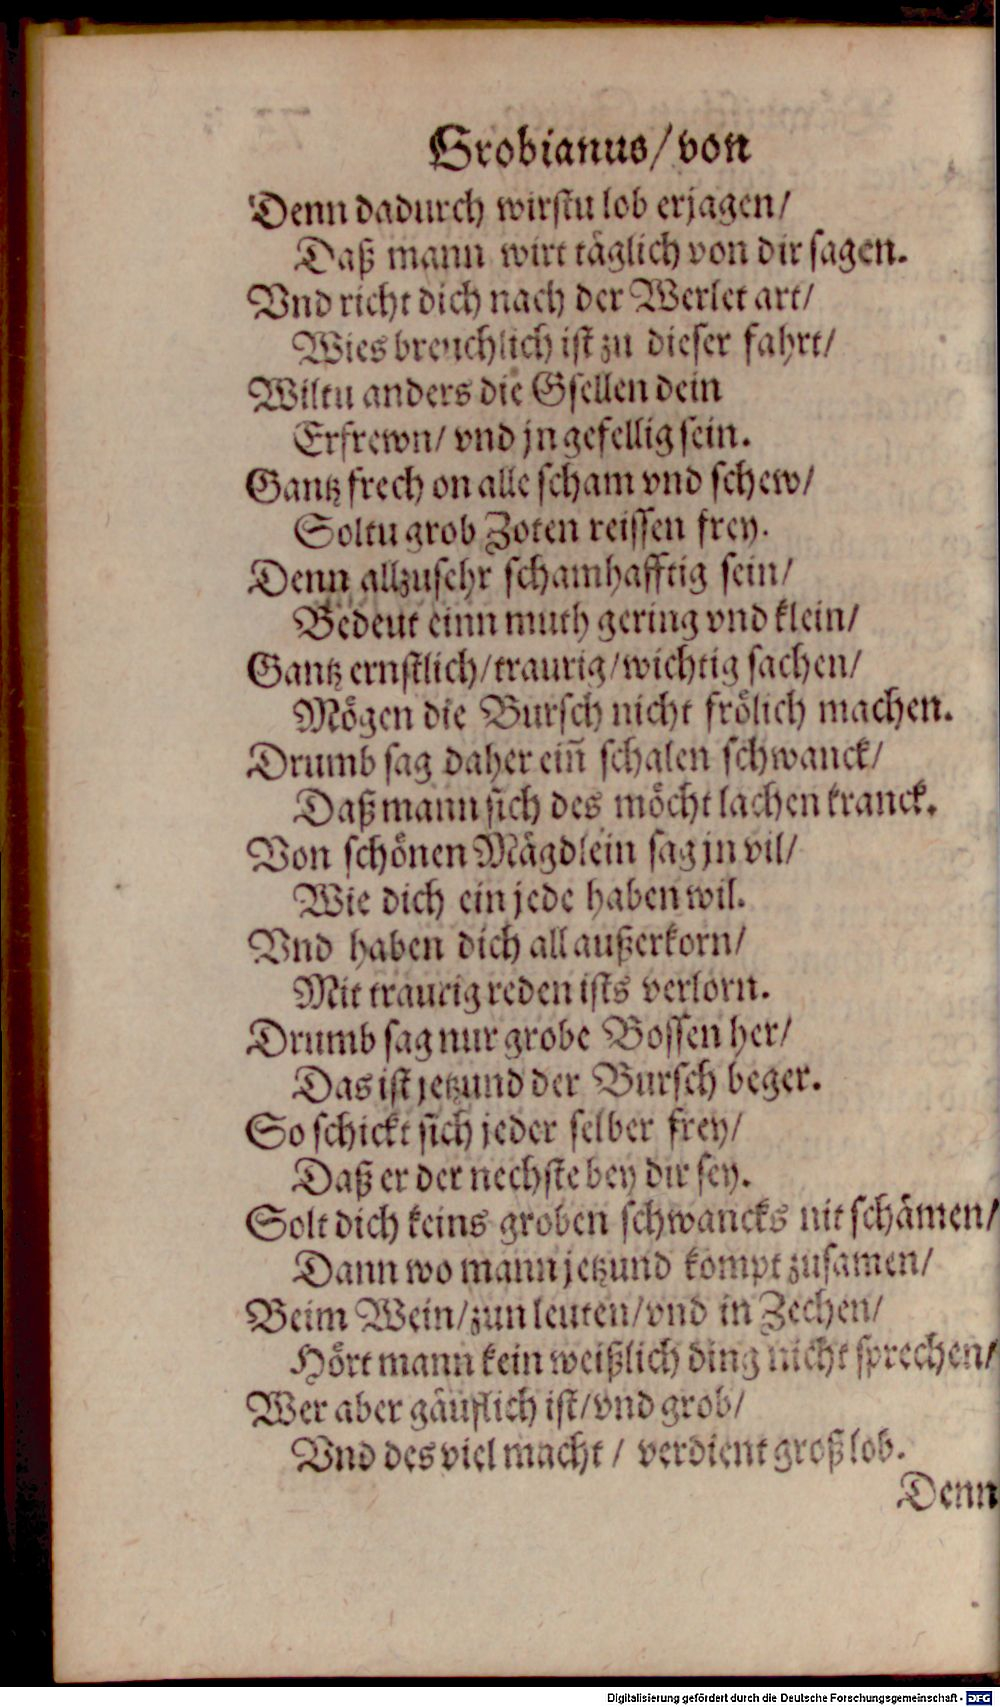 Grobianus/ von
Denn dadurch wirstu lob erjagen/
Daß mann wirt täglich von dir sagen.
Vnd richt dich nach der Werlet art/
Wies breuchlich ist zu dieser fahrt/
Wiltu anders die Gsellen dein
Erfrewn/ vnd jn gefellig sein.
Gantz frech on alle scham vnd schew/
Soltu grob Zoten reissen frey.
Denn allzusehr schamhafftig sein/
Bedeut einn muth gering vnd klein/
Gantz ernstlich/ traurig/ wichtig sachen/
Mögen die Bursch nicht frölich machen.
Drumb sag daher ein̄ schalen schwanck/
Daß mann sich des möcht lachen kranck.
Von schönen Mägdlein sag jn vil/
Wie dich ein jede haben wil.
Vnd haben dich all außerkorn/
Mit traurig reden ists verlorn.
Drumb sag nur grobe Bossen her/
Das ist jetzund der Bursch beger.
So schickt sich jeder selber frey/
Daß er der nechste bey dir sey.
Solt dich keins groben schwancks nit schämen/
Dann wo mann jetzund kompt zusamen/
Beim Wein/ zun leuten/ vnd in Zechen/
Hört mann kein weißlich ding nicht sprechen/
Wer aber gäuflich ist/ vnd grob/
Vnd des viel macht/ verdient groß lob.
Denn
Digitalisierung gefördert durch die Deutsche Forschungsgemeinschaft - DFG